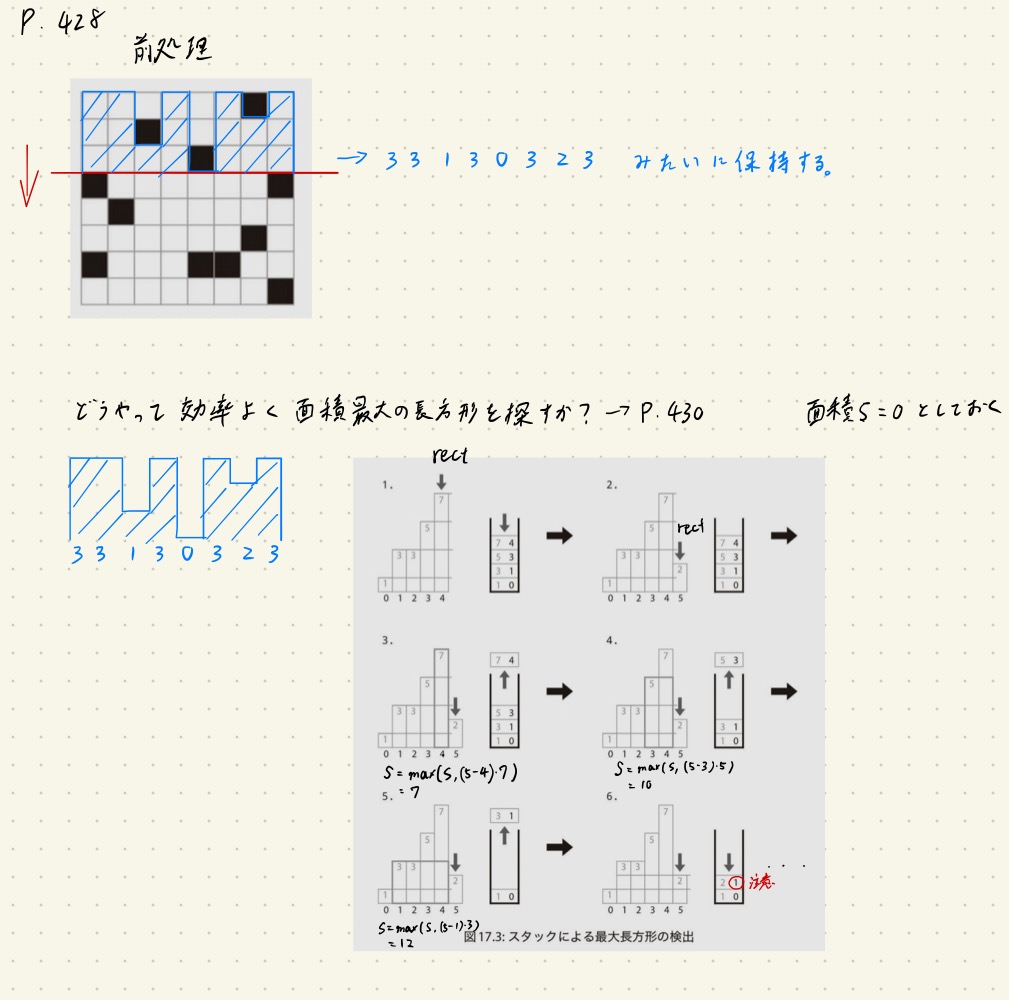 P. 428
前処理
→ 3 3 1 3 0 3 2 3 みたいに保持する。
どうやって効率よく面積最大の長方形を探すか? → P. 430
面積S = 0 としておく
3 3 1 3 0 3 2 3
rect
1.
7
5
3 3
1
0 1 2 3 4
7 4
5 3
3 1
1 0
2.
7
rect
5
3 3
2
1
0 1 2 3 4 5
7 4
5 3
3 1
1 0
3.
7
5
3 3
2
1
0 1 2 3 4 5
7 4
5 3
3 1
1 0
S = max(S, (5-4)・7)
= 7
4.
7
5
3 3
2
1
0 1 2 3 4 5
5 3
3 1
1 0
S = max(S, (5-3)・5)
= 10
5.
7
5
3 3
2
1
0 1 2 3 4 5
3 1
1 0
S = max(S, (5-1)・3)
= 12
6.
7
5
3 3
2
1
0 1 2 3 4 5
2 1 注意
1 0
. . .
図17.3: スタックによる最大長方形の検出